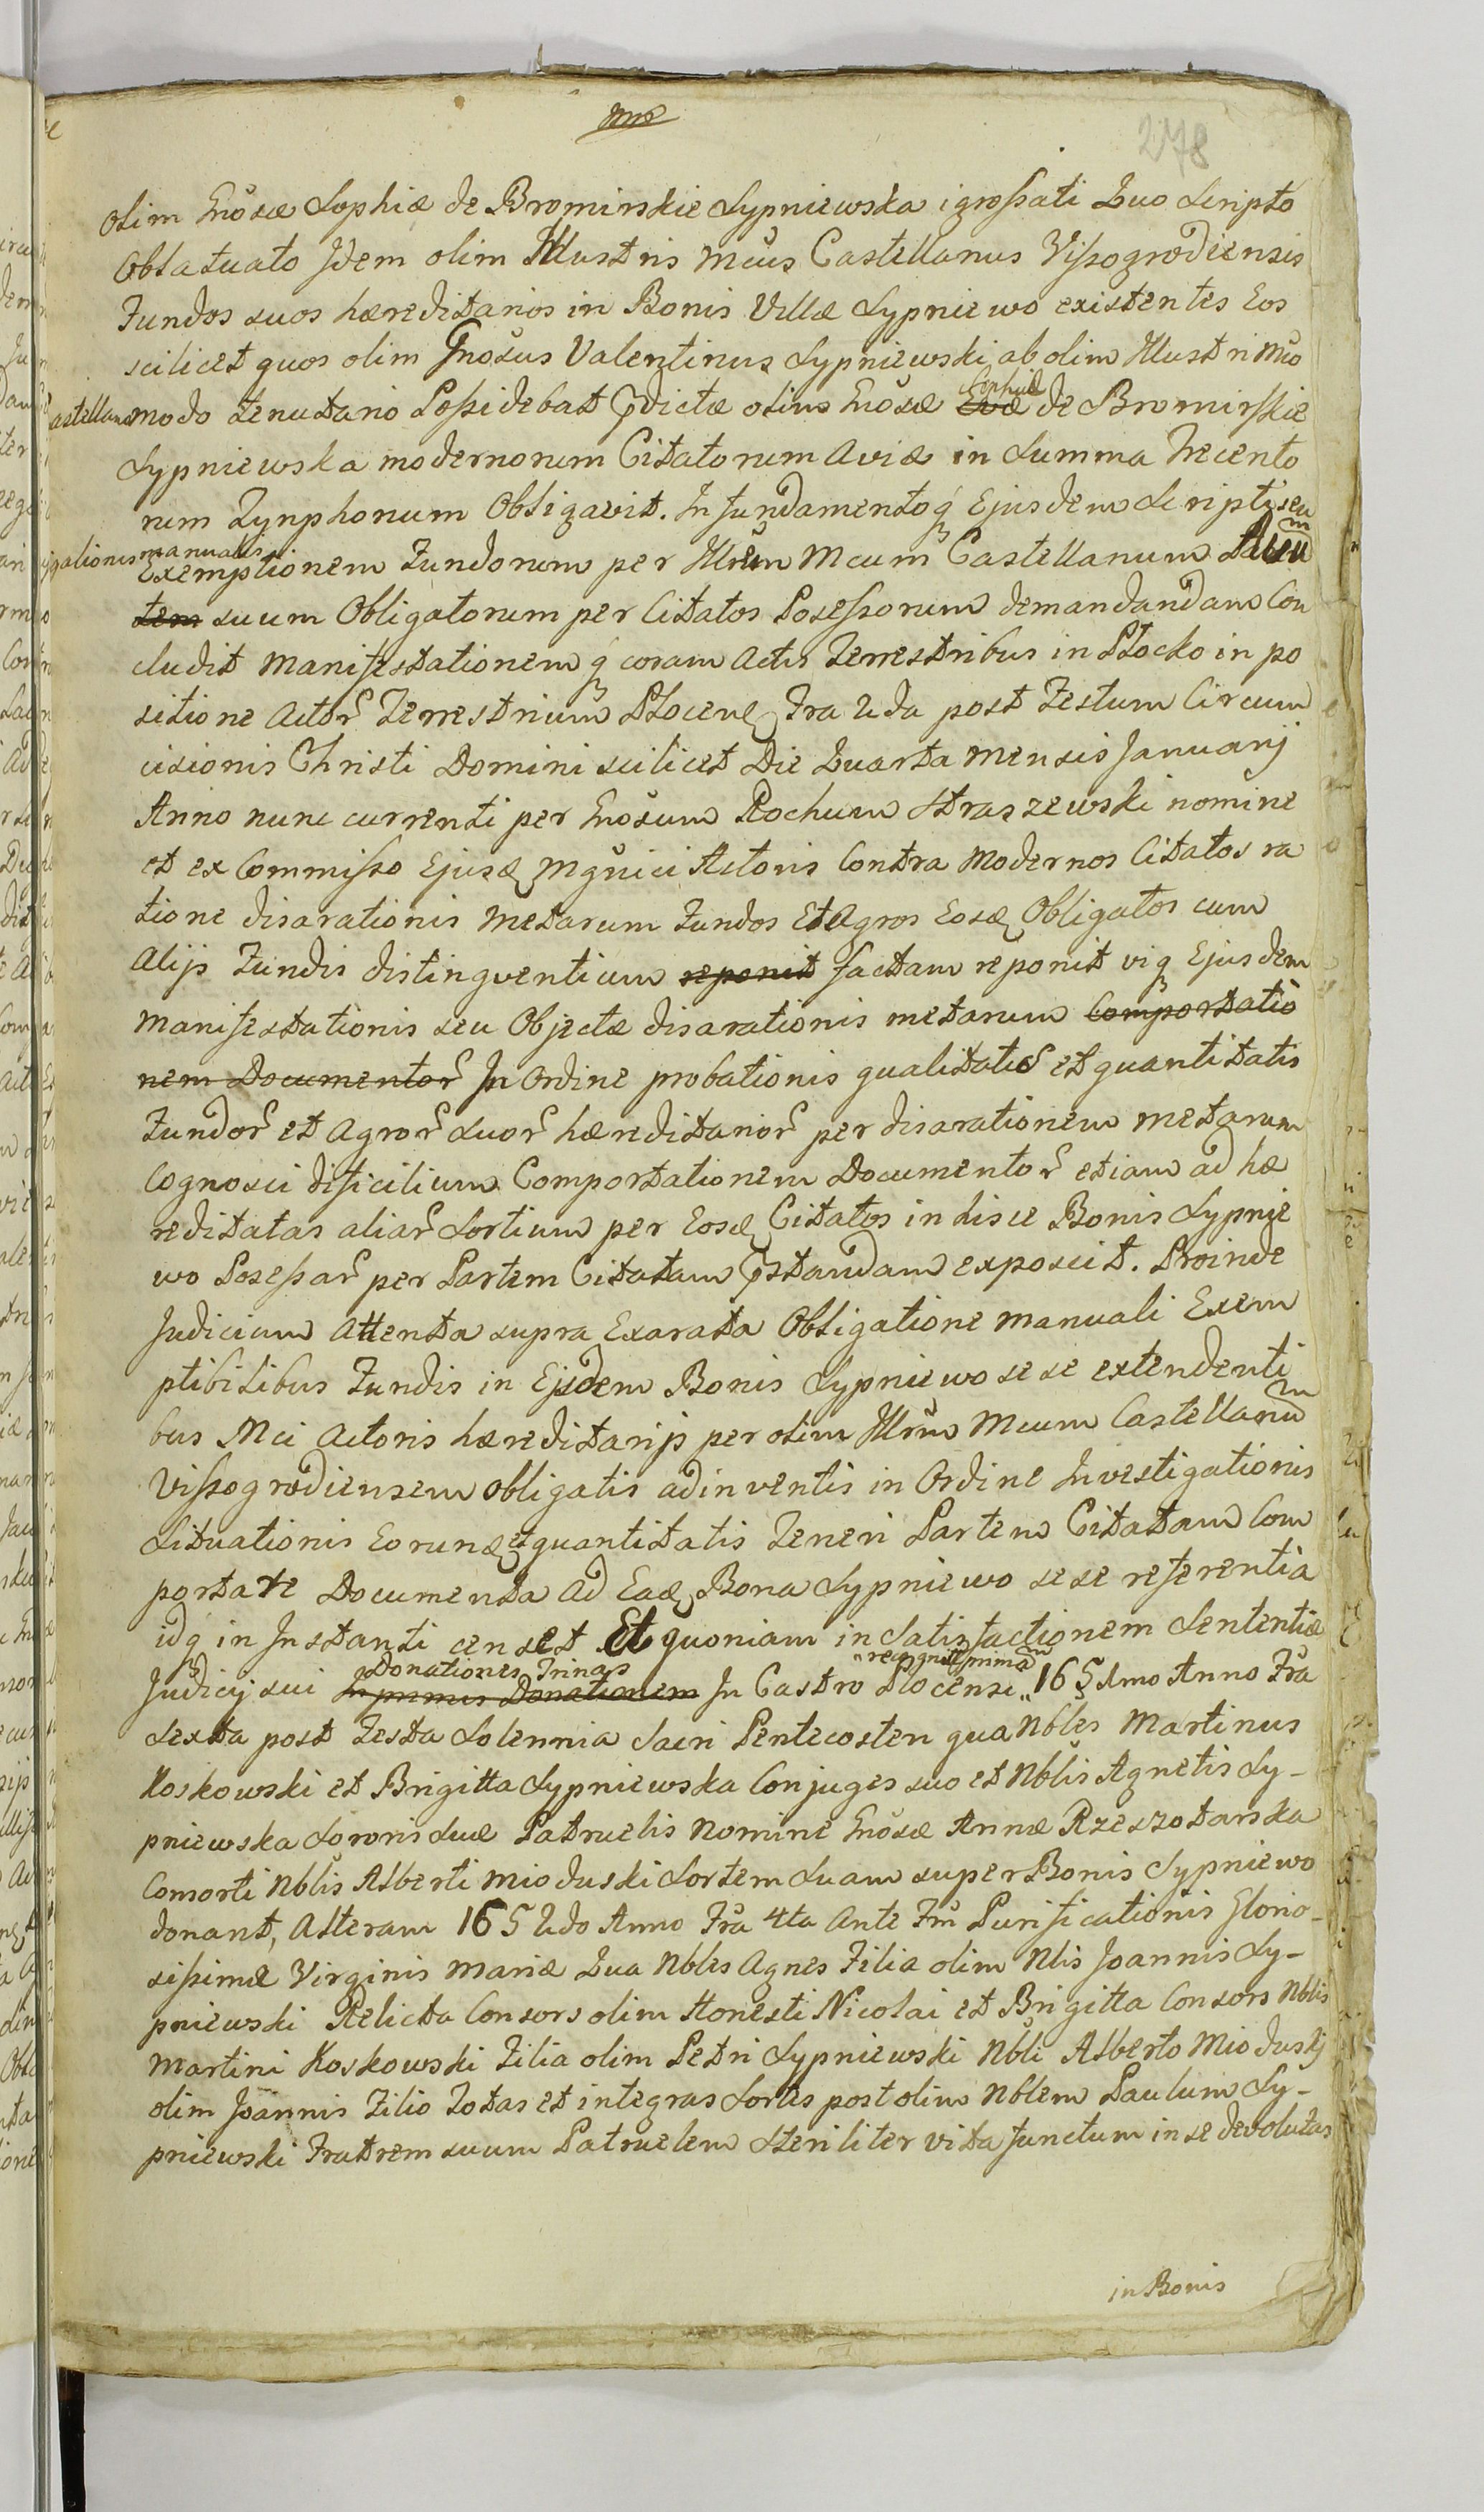 278
olim Gnősæ Sophiæ de Bromirskie Lypniewska igroſsati Quo Scripto
Oblatuato Jdem olim Jllustris Mcus Castellanus Viſsogrodiensis
Fundos suos hæreditarios in Bonis Villæ Lypniewo existentes Eos
scilicet quos olim Gnősus Valentinus Lypniewski ab olim Jllustri Mco
Castellano modo tenutario Poſsidebat p̄dictæ olim Gnősæ Evæ Sophiæ de Bromirſkie
Lypniewska modernorum Citatorum Aviæ in Summa Trecento
rum Tynphonum Obligavit. In fundamentoq́ Ejusdem Scripti seu
Obligationis manualis Exemptionem Fundorum per Jllrem Mcum Castellanum Patrem
tem suum Obligatorum per Citatos Poseſsorum demandandam Con
cludit Manifestationem q́ coram Actis Terrestribus in Płocko in po
sitione Actor̃ Terrestrium Płocens̨ Fra 2da post Festum Circum
cisionis Christi Domini scilicet Die Quarta Mensis Januarij
Anno nunc currenti per Gnősum Rochum Straszewski nomine
et ex Commiſso Ejusd̨ Mgnici Actoris Contra Modernos Citatos ra
tione disarationis Metarum Fundos Et Agros Eosd̨ Obligatos cum
Alijs Fundis distingventium reponit factam reponit viq́ Ejusdem
Manifestationis seu Objectæ disarationis metarum Comportatio
nem Documentor̃ In Ordine probationis qualitatis et quantitatis
Fundor̃ et Agror̃ Suor̃ hæreditarior̃ per disarationem Metarum
Cognosci dificilium Comportationem Documentor̃ etiam ad hæ
reditatas aliar̃ Sortium per Eosd̨ Citatos in hisce Bonis Lypnie
wo Poseſsar̃ per Partem Citatam p̄standam exposcit. Proinde
Judicium Attenta supra Exarata Obligatione manuali Exem
ptibilibus Fundis in Ejsdem Bonis Lypniewo sese extendenti
bus Mci Actoris hæreditarijs per olim Jllrem Mcum Castellanum
Viſsogrodiensem obligatis adinventis in Ordine Investigationis
Situationis Eorund̨ et quantitatis Teneri Partem Citatam Com
portare Documenta Ad Ead̨ Bona Lypniewo sese referentia
idq́ in Jnstanti censet. Et quoniam in Satisfactionem Sententiæ
Judicij sui In primis Donationem Donationes Trinas In Castro Płocensi „ recognit primam „ 165 1mo Anno Fra
Sexta post Festa Solennia Sacri Pentecosten qua Nbles Martinus
Koskowski et Brigitta Lypniewska Conjuges suo et Nblis Agnetis Ly-
pniewska Sororis Suæ Patruelis Nomine Gnősæ Annæ Rzeszotarska
Consorti Nblis Alberti Mioduski Sortem Suam super Bonis Lypniewo
donant, Alteram 165 2do Anno Fra 4ta Ante Fm Purificationis Glorio-
siſsimæ Virginis Mariæ Qua Nbles Agnes Filia olim Nlis Joannis Ly-
pniewski Relicta Consors olim Honesti Nicolai et Brigitta Consors Nblis
Martini Koskowski Filia olim Petri Lypniewski Nbli Alberto Mioduskj
olim Joannis Filio Totas et integras Sortes post olim Nblem Paulum Ly-
pniewski Fratrem suum Patruelem Steriliter vita functum in se devolutas
in Bonis